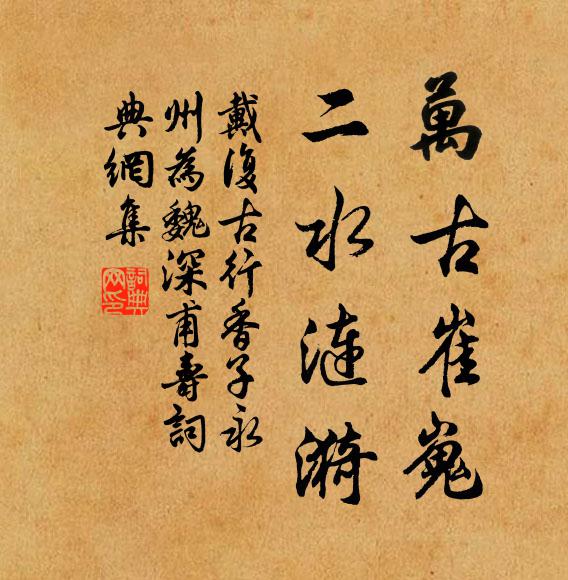 萬古崔嵬
二水漣漪
戴復古行香子永
州為魏深甫壽詞
典網集
詞典網印